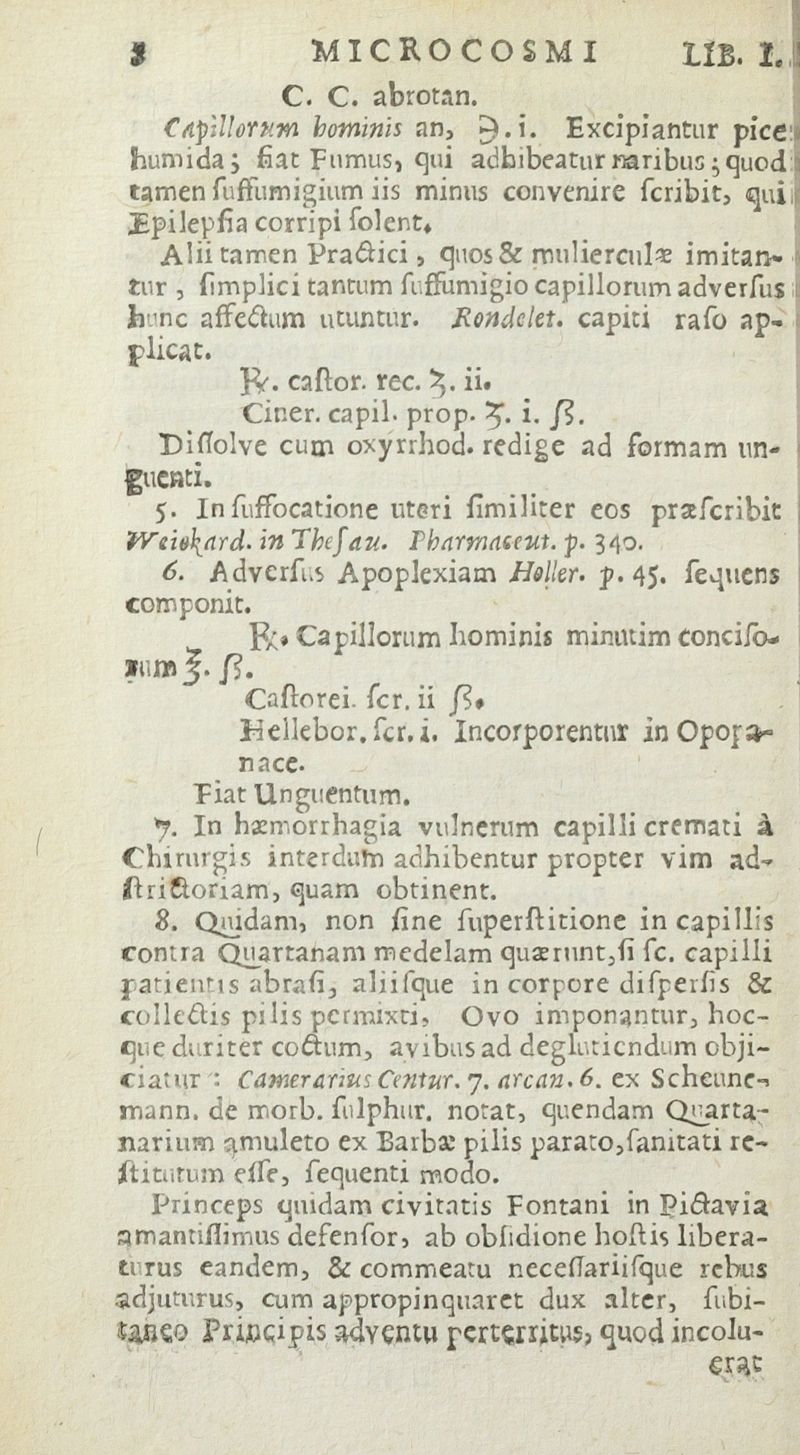 8 MICROCOSMI LIB. I.
C. C. abrotan.
Capillorum hominis an, ℈. i. Excipiantur pice
humida; fiat Fumus, qui adhibeatur naribus; quod
tamen ſuffumigium iis minus convenire ſcribit, qui
Epilepſia corripi ſolent.
Alii tamen Practici, quos & mulierculæ imitan-
tur, ſimplici tantum ſuffumigio capillorum adverſus
hunc affectum utuntur. Rondelet. capiti raſo ap-
plicat.
℞. caſtor. rec. ʒ. ii.
Ciner. capil. prop. ʒ. i. ſs.
Diſſolve cum oxyrrhod. redige ad formam un-
guenti.
5. In ſuffocatione uteri ſimiliter eos præſcribit
Weickard. in Theſau. Pharmaceut. p. 340.
6. Adverſus Apoplexiam Holler. p. 45. ſequens
componit.
℞. Capillorum hominis minutim conciſo-
rum ℥. ſs.
Caſtorei. ſcr. ii ſs.
Hellebor. ſcr. i. Incorporentur in Opopa-
nace.
Fiat Unguentum.
7. In hæmorrhagia vulnerum capilli cremati à
Chirurgis interdum adhibentur propter vim ad-
ſtrictoriam, quam obtinent.
8. Quidam, non ſine ſuperſtitione in capillis
contra Quartanam medelam quærunt, ſi ſc. capilli
patientis abraſi, aliiſque in corpore diſperſis &
collectis pilis permixti, Ovo imponantur, hoc-
que duriter coctum, avibus ad deglutiendum obji-
ciatur: Camerarius Centur. 7. arcan. 6. ex Scheune-
mann. de morb. ſulphur. notat, quendam Quarta-
narium amuleto ex Barbæ pilis parato, ſanitati re-
ſtitutum eſſe, ſequenti modo.
Princeps quidam civitatis Fontani in Pictavia
amantiſſimus defenſor, ab obſidione hoſtis libera-
turus eandem, & commeatu neceſſariiſque rebus
adjuturus, cum appropinquaret dux alter, ſubi-
taneo Principis adventu perterritus, quod incolu-
erat